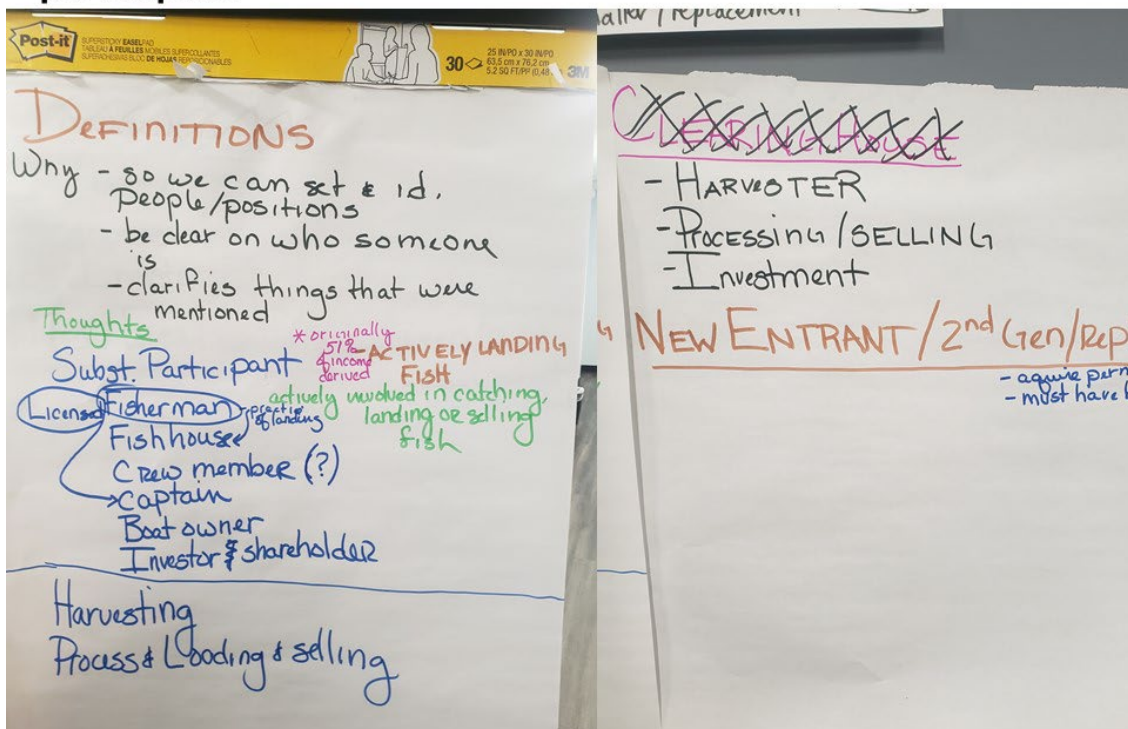 Post-it
SUPERSTICKY EASEL PAD
TABLEAU À FEUILLES MOBILES SUPERCOLLANTES
SUPERADHESIVAS BLOC DE HOJAS REPOSICIONABLES
30
25 IN/PO x 30 IN/PO
63,5 cm x 76,2 cm
5.2 SQ FT/PI² (0,48
3M
DEFINITIONS
Why - so we can set & id.
people/positions
- be clear on who someone
is
- clarifies things that were
mentioned
Thoughts
* originally
51%
of income
derived
Subst. Participant
- ACTIVELY LANDING
FISH
Licensed Fisherman - practice
of landing
actively involved in catching,
landing or selling
fish
Fishhouse
Crew member (?)
Captain
Boat owner
Investor & shareholder
Harvesting
Process & Loading & selling
/ replacement
CLEARING HOUSE
- HARVESTER
- PROCESSING / SELLING
- Investment
NEW ENTRANT / 2nd Gen/Rep
- aquire perm
- must have